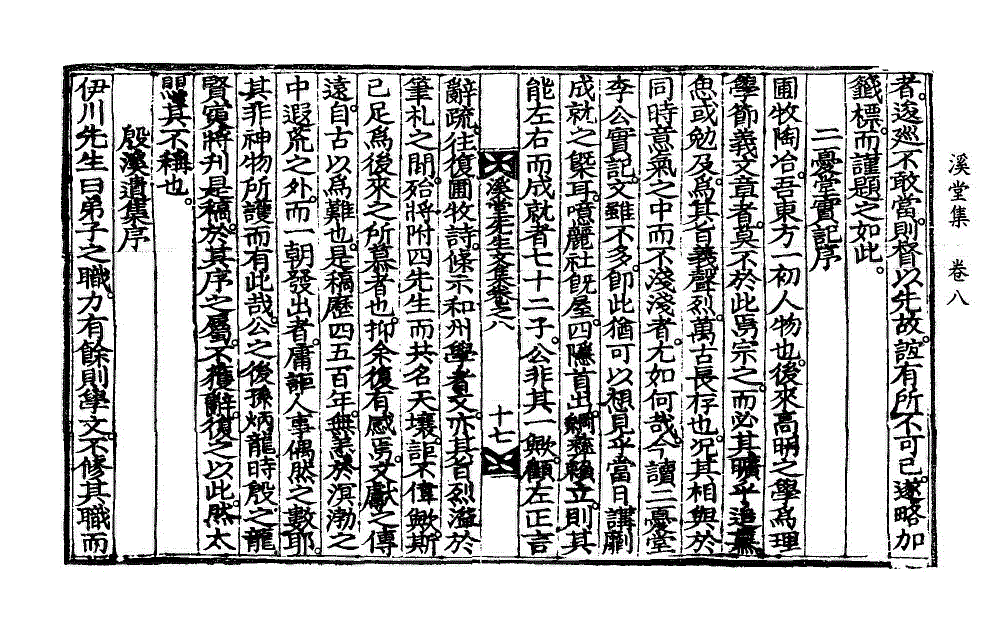 溪堂集 卷八
者。逡巡不敢當。則督以先故。誼有所不可已。遂略加
籤標。而謹題之如此。
二憂堂實記序
圃牧陶冶。吾東方一初人物也。後來高明之學爲理
學節義文章者。莫不於此焉宗之。而必其曠乎追慕。
思或勉及。爲其首義聲烈。萬古長存也。况其相與於
同時意氣之中而不淺淺者。尤如何哉。今讀二憂堂
李公實記。文雖不多。卽此猶可以想見乎當日講劘
成就之槩耳。噫麗社旣屋。四隱首出。綱彝賴立。則其
能左右而成就者七十二子。公非其一歟。顧左正言
溪堂先生文集卷之八 十七
辭疏。徃復圃牧詩。條示和州學者文。亦其首烈溢於
筆札之間。殆將附四先生而共名天壤。詎不偉歟。斯
已足爲後來之所慕者也。抑余復有感焉。文獻之傳
遠。自古以爲難也。是稿歷四五百年。無恙於溟渤之
中遐荒之外。而一朝發出者。庸詎人事偶然之數耶。
其非神物所護而有此哉。公之後孫炳龍時殷之龍
賢寅將刋是稿。於其序之屬。不獲辭復之以此。然太
其不稱也。
殷溪遺集序
伊川先生曰弟子之職。力有餘則學文。不修其職而